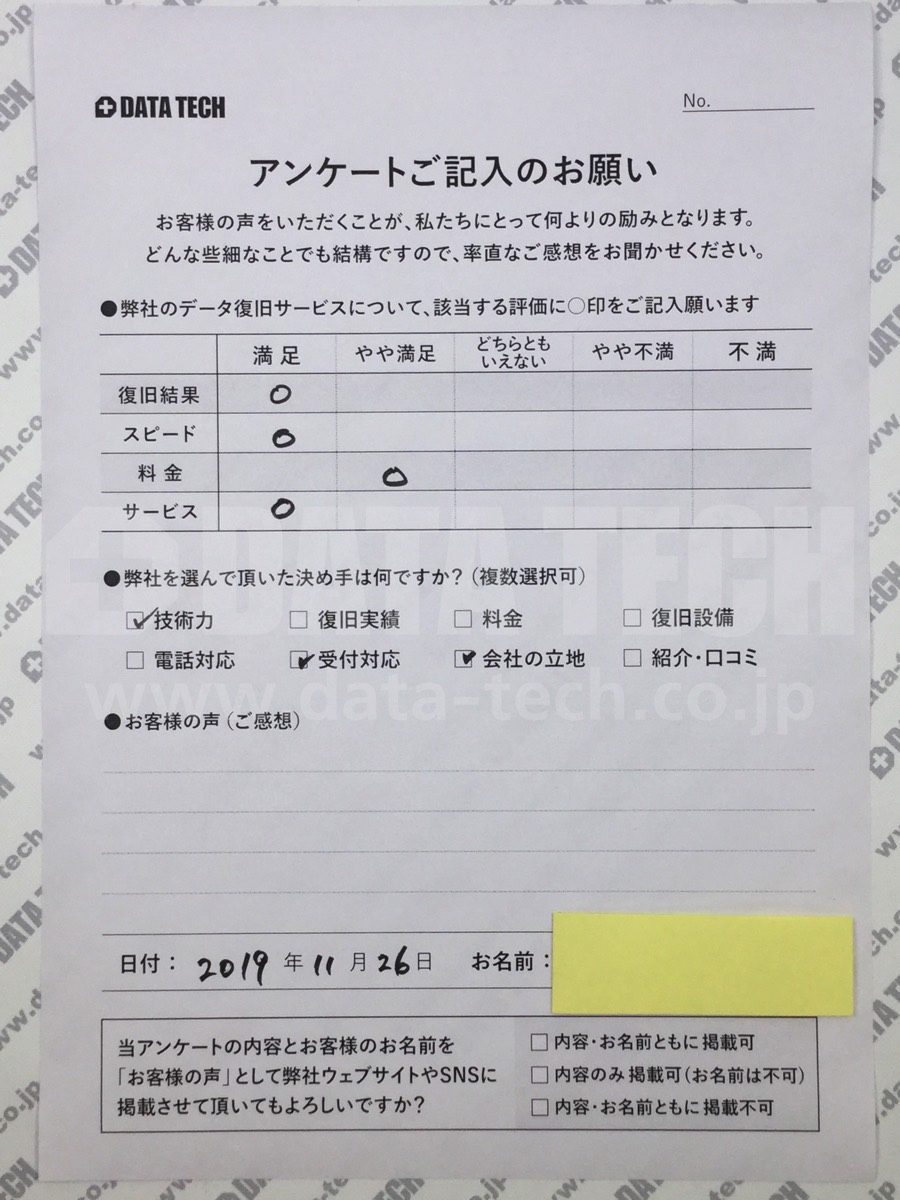 DATA TECH
No.
アンケートご記入のお願い
お客様の声をいただくことが、私たちにとって何よりの励みとなります。
どんな些細なことでも結構ですので、率直なご感想をお聞かせください。
●弊社のデータ復旧サービスについて、該当する評価に○印をご記入願います
満足 やや満足 どちらとも いえない やや不満 不満
復旧結果 ○
スピード ○
料金 ○
サービス ○
●弊社を選んで頂いた決め手は何ですか?(複数選択可)
☑技術力 □復旧実績 □料金 □復旧設備
□電話対応 ☑受付対応 ☑会社の立地 □紹介・口コミ
●お客様の声(ご感想)
日付: 2019 年 11 月 26 日 お名前:
当アンケートの内容とお客様のお名前を
「お客様の声」として弊社ウェブサイトやSNSに
掲載させて頂いてもよろしいですか?
□内容・お名前ともに掲載可
□内容のみ掲載可(お名前は不可)
□内容・お名前ともに掲載不可
DATA TECH
www.data-tech.co.jp